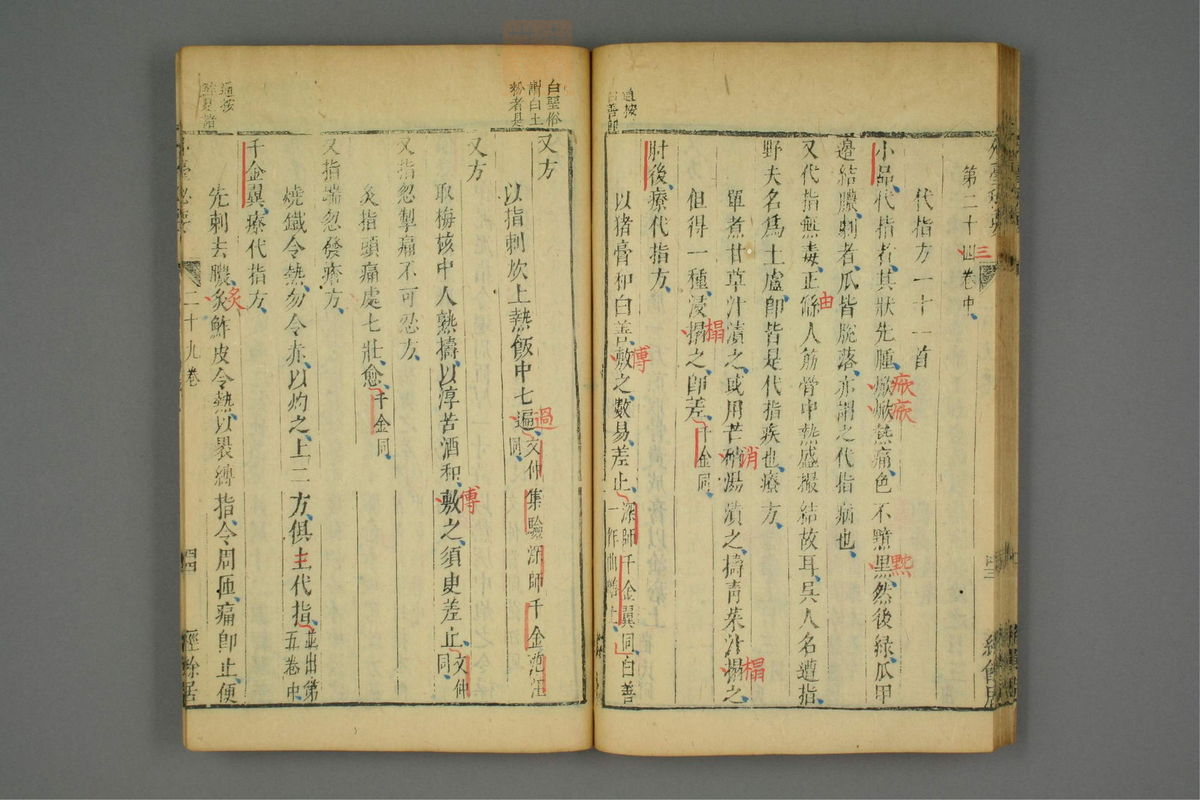 第二十四卷中
三
代指方一十一首
小品代指者其狀先腫焮焮熱痛色不黯黑然後緣爪甲
瘚瘚
黓
邊結膿剌者爪皆脫落亦謂之代指病也
又代指無毒正緣人筋骨中熱盛撮結故耳吳人名遭指
由
野夫名爲土盧卽皆是代指疾也療方
單煮甘草汁漬之或用芒硝湯漬之擣青菜汁搨之
消
榻
但得一種浸搨之卽差千金同
榻
肘後療代指方
以猪膏和白善敷之數易差止深師千金翼同白善
傅
廸按
白堊俗
謂白土
粉者是
又方
以指刺炊上熱飯中七遍文仲集驗深師千金范汪
同
過
又方
取梅核中人熟擣以淳苦酒和敷之須臾差止文仲
同
傅
又指忽掣痛不可忍方
灸指頭痛處七壯愈千金同
又指端忽發療方
燒鐵令熱勿令赤以灼之上二方俱主代指並出第
五卷中
千金翼療代指方
先刺去膿灸鮓皮令熱以裹縛指令周匝痛卽止便
炙
廸按
二十九卷
四四
經餘居